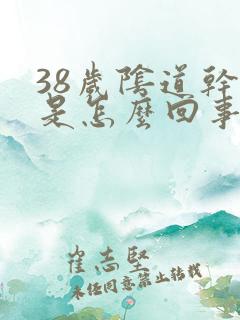 38歲陰道幹
是怎麼回事
崔志堅
未經同意禁止轉載